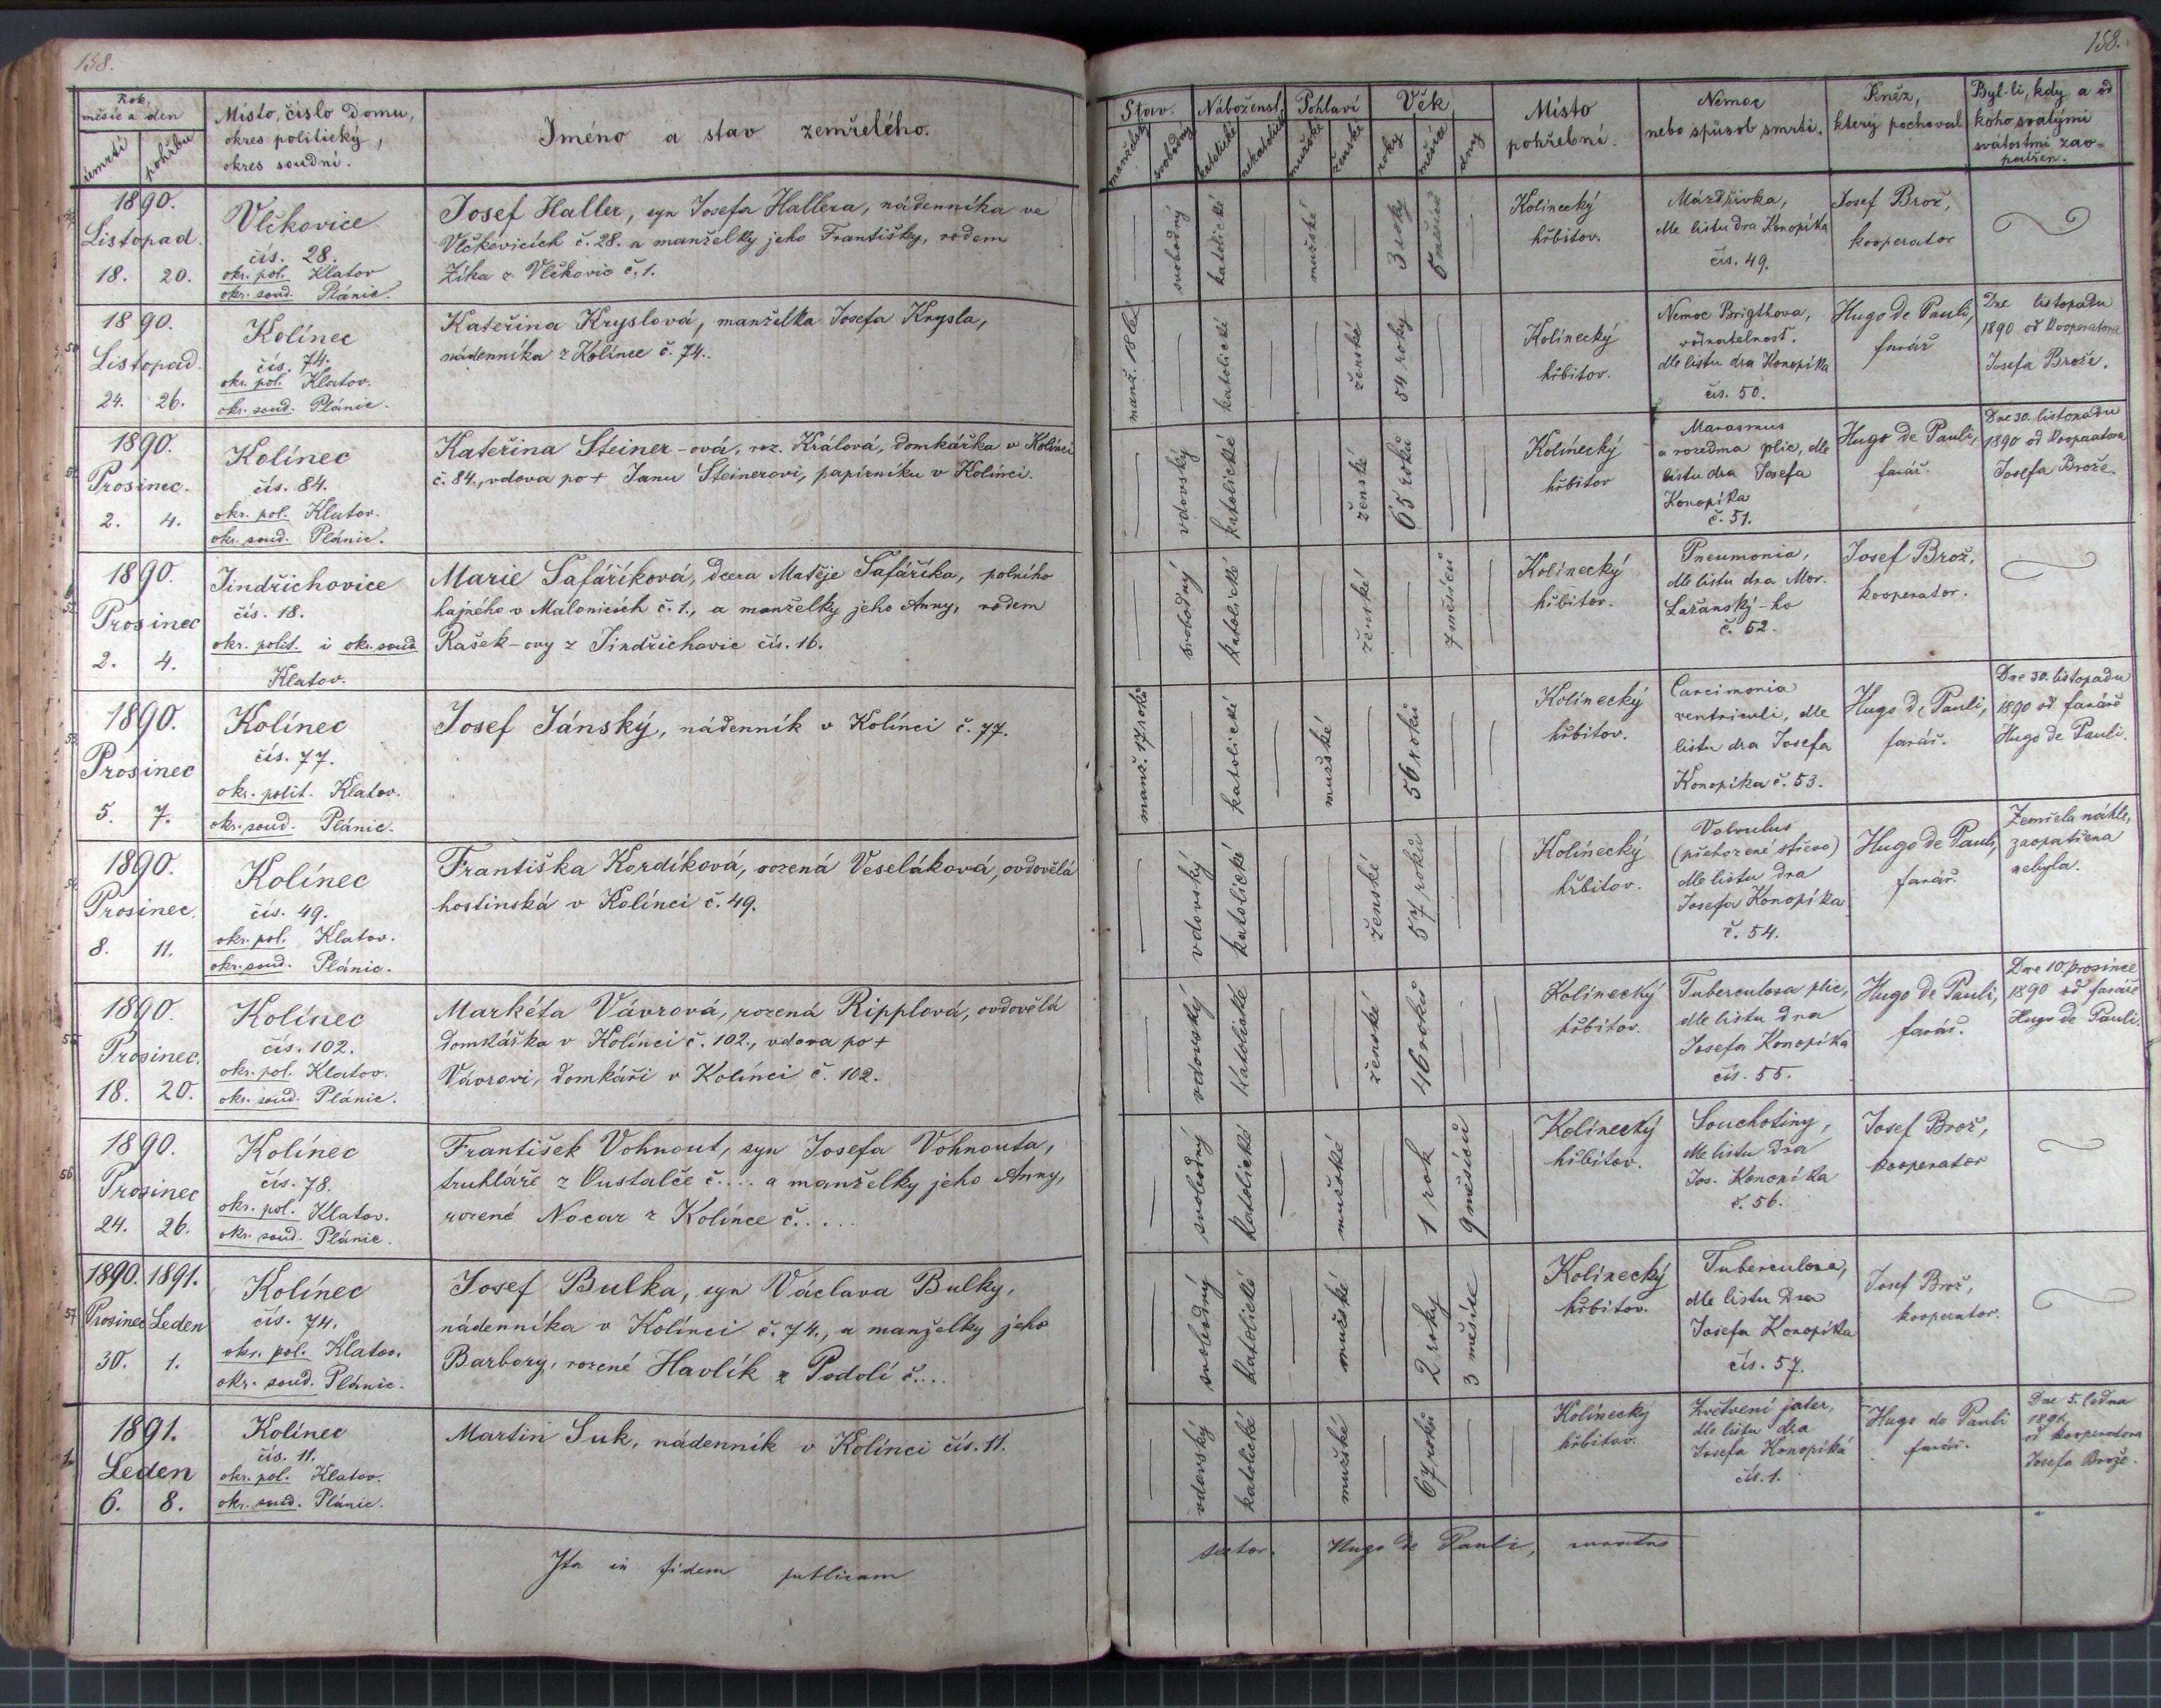 158.
Rok, měsíc a den
úmrtí
pohřbu
Místo, číslo domu,
okres politický,
okres soudní.
Jméno a stav zemřelého.
1890.
Listopad.
18. 20.
Vlčkovice
čís. 28.
okr. pol. Klatov
okr. soud. Plánic.
Josef Haller, syn Josefa Hallera, nádenníka ve
Vlčkovicích č. 28. a manželky jeho Františky, rodem
Zíka z Vlčkovic č. 1.
50
1890.
Listopad.
24. 26.
Kolínec
čís. 74.
okr. pol. Klatov.
okr. soud. Plánic.
Kateřina Kryslová, manželka Josefa Krysla,
nádenníka z Kolínce č. 74.
51
1890.
Prosinec.
2. 4.
Kolínec
čís. 84.
okr. pol. Klatov.
okr. soud. Plánic.
Kateřina Steiner-ová, roz. Králová, domkářka v Kolínci
č. 84., vdova po + Janu Steinerovi, papírníku v Kolínci.
52
1890.
Prosinec
2. 4.
Jindřichovice
čís. 18.
okr. polit. i okr. soud
Klatov.
Marie Šafáříková, dcera Matěje Šafáříka, polního
hajného v Malonicích č. 1., a manželky jeho Anny, rodem
Rašek-ovy z Jindřichovic čís. 16.
53
1890.
Prosinec
5. 7.
Kolínec
čís. 77.
okr. polit. Klatov.
okr. soud. Plánic.
Josef Jánský, nádenník v Kolínci č. 77.
54
1890.
Prosinec.
8. 11.
Kolínec
čís. 49.
okr. pol. Klatov.
okr. soud. Plánic.
Františka Kordíková, rozená Veseláková, ovdovělá
hostinská v Kolínci č. 49.
55
1890.
Prosinec.
18. 20.
Kolínec
čís. 102.
okr. pol. Klatov.
okr. soud. Plánic.
Markéta Vávrová, rozená Ripplová, ovdovělá
domkářka v Kolínci č. 102., vdova po +
Vávrovi, domkáři v Kolínci č. 102.
56
1890.
Prosinec
24. 26.
Kolínec
čís. 78.
okr. pol. Klatov.
okr. soud. Plánic.
František Vohnout, syn Josefa Vohnouta,
truhláře z Oustalče č.... a manželky jeho Anny,
rozené Nocar z Kolínce č.....
57
1890. 1891.
Prosinec Leden
30. 1.
Kolínec
čís. 74.
okr. pol. Klatov.
okr. soud. Plánic.
Josef Bulka, syn Václava Bulky,
nádenníka v Kolínci č. 74., a manželky jeho
Barbory, rozené Havlík z Podolí č....
1.
1891.
Leden
6. 8.
Kolínec
čís. 11.
okr. pol. Klatov.
okr. soud. Plánic.
Martin Suk, nádenník v Kolínci čís. 11.
Ita in fidem publicam
158.
Stav.
manželský
svobodný
Náboženst.
katolické
nekatolické
Pohlaví
mužské
ženské
Věk
roky
měsíce
dny
Místo
pohřební.
Nemoc
nebo způsob smrti.
Kněz,
který pochoval
Byl-li, kdy a od
koho svatými
svátostmi zao-
patřen.
svobodný
katolické
mužské
3 roky
6 měsíců
Kolínecký
hřbitov.
Mázdřivka,
dle listu dra Konopíka
čís. 49.
Josef Brož,
kooperator
manž. 18 let
katolické
ženské
54 roky
Kolínecký
hřbitov.
Nemoc Brigthova,
vodnatelnost.
dle listu dra Konopíka
čís. 50.
Hugo de Pauli,
farář
Dne listopadu
1890 od kooperatora
Josefa Brože.
vdovský
katolické
ženské
65 roků
Kolínecký
hřbitov
Marasmus
a rozedma plic, dle
listu dra Josefa
Konopíka
č. 51.
Hugo de Pauli,
farář.
Dne 30. listopadu
1890 od kooperatora
Josefa Brože.
svobodný
katolické
ženské
7 měsíců
Kolínecký
hřbitov.
Pneumonia,
dle listu dra Mor.
Lažanský-ho
č. 52.
Josef Brož,
kooperator.
manž. 17 roků
katolické
mužské
56 roků
Kolínecký
hřbitov.
Carcimonia
ventriculi, dle
listu dra Josefa
Konopíka č. 53.
Hugo de Pauli,
farář.
Dne 30. listopadu
1890 od faráře
Hugo de Pauli.
vdovský
katolické
ženské
57 roků
Kolínecký
hřbitov.
Volvulus
(přehozené střevo)
dle listu dra
Josefa Konopíka
č. 54.
Hugo de Pauli,
farář.
Zemřela náhle,
zaopatřena
nebyla.
vdovský
katolické
ženské
46 roků
Kolínecký
hřbitov.
Tuberculosa plic,
dle listu dra
Josefa Konopíka
čís. 55.
Hugo de Pauli,
farář.
Dne 10. prosince
1890 od faráře
Hugo de Pauli.
svobodný
katolické
mužské
1 rok
9 měsíců
Kolínecký
hřbitov.
Souchotiny,
dle listu dra
Jos. Konopíka
č. 56.
Josef Brož,
kooperator
svobodný
katolické
mužské
2 roky
3 měsíce
Kolínecký
hřbitov.
Tuberculosa,
dle listu dra
Josefa Konopíka
čís. 57.
Josef Brož,
kooperator.
vdovský
katolické
mužské
67 roků
Kolínecký
hřbitov.
Zvětvení jater,
dle listu dra
Josefa Konopíka
čís. 1.
Hugo de Pauli
farář.
Dne 5. ledna
1891
od kooperatora
Josefa Brože.
testor. Hugo de Pauli, curatus